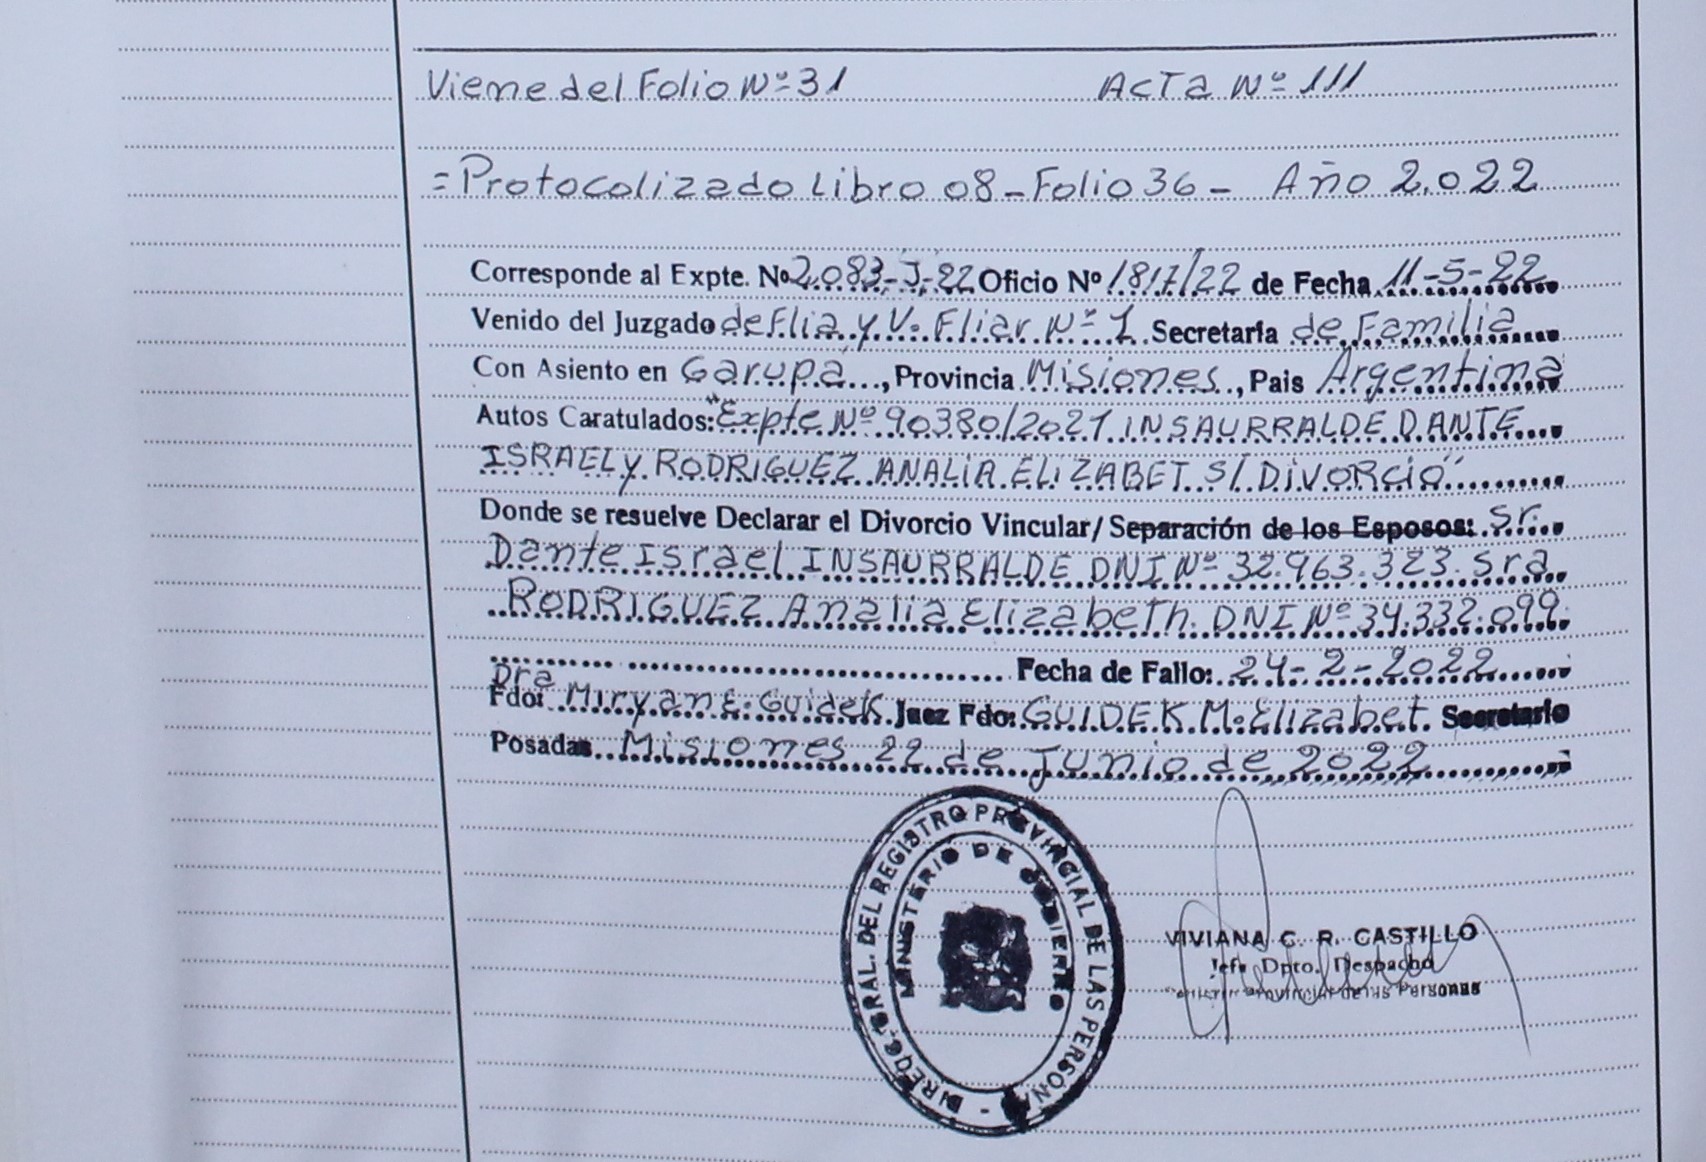 Viene del Folio Nº 31 Acta Nº 111
= Protocolizado Libro 08 - Folio 36 - Año 2.022
Corresponde al Expte. Nº 2.083-J-22 Oficio Nº 1817/22 de Fecha 11-5-22
Venido del Juzgado de Flia y V. Fliar Nº 1 Secretaría de Familia
Con Asiento en Garupa, Provincia Misiones, Pais Argentina
Autos Caratulados: "Expte Nº 90380/2021 INSAURRALDE DANTE
ISRAEL y RODRIGUEZ ANALIA ELIZABET S/ DIVORCIO"
Donde se resuelve Declarar el Divorcio Vincular/ Separación de los Esposos: Sr.
Dante Israel INSAURRALDE DNI Nº 32.963.323. Sra
RODRIGUEZ Analia Elizabeth. DNI Nº 34.332.099.
Fecha de Fallo: 24-2-2022
Dra
Fdo: Miryan E. Guidek. Juez Fdo: GUIDEK M. Elizabet. Secretario
Posadas Misiones 22 de Junio de 2022
DIREC. GRAL. DEL REGISTRO PROVINCIAL DE LAS PERSONAS
MINISTERIO DE GOBIERNO
VIVIANA C. R. CASTILLO
Jefe Dpto. Despacho
Provincial de las Personas